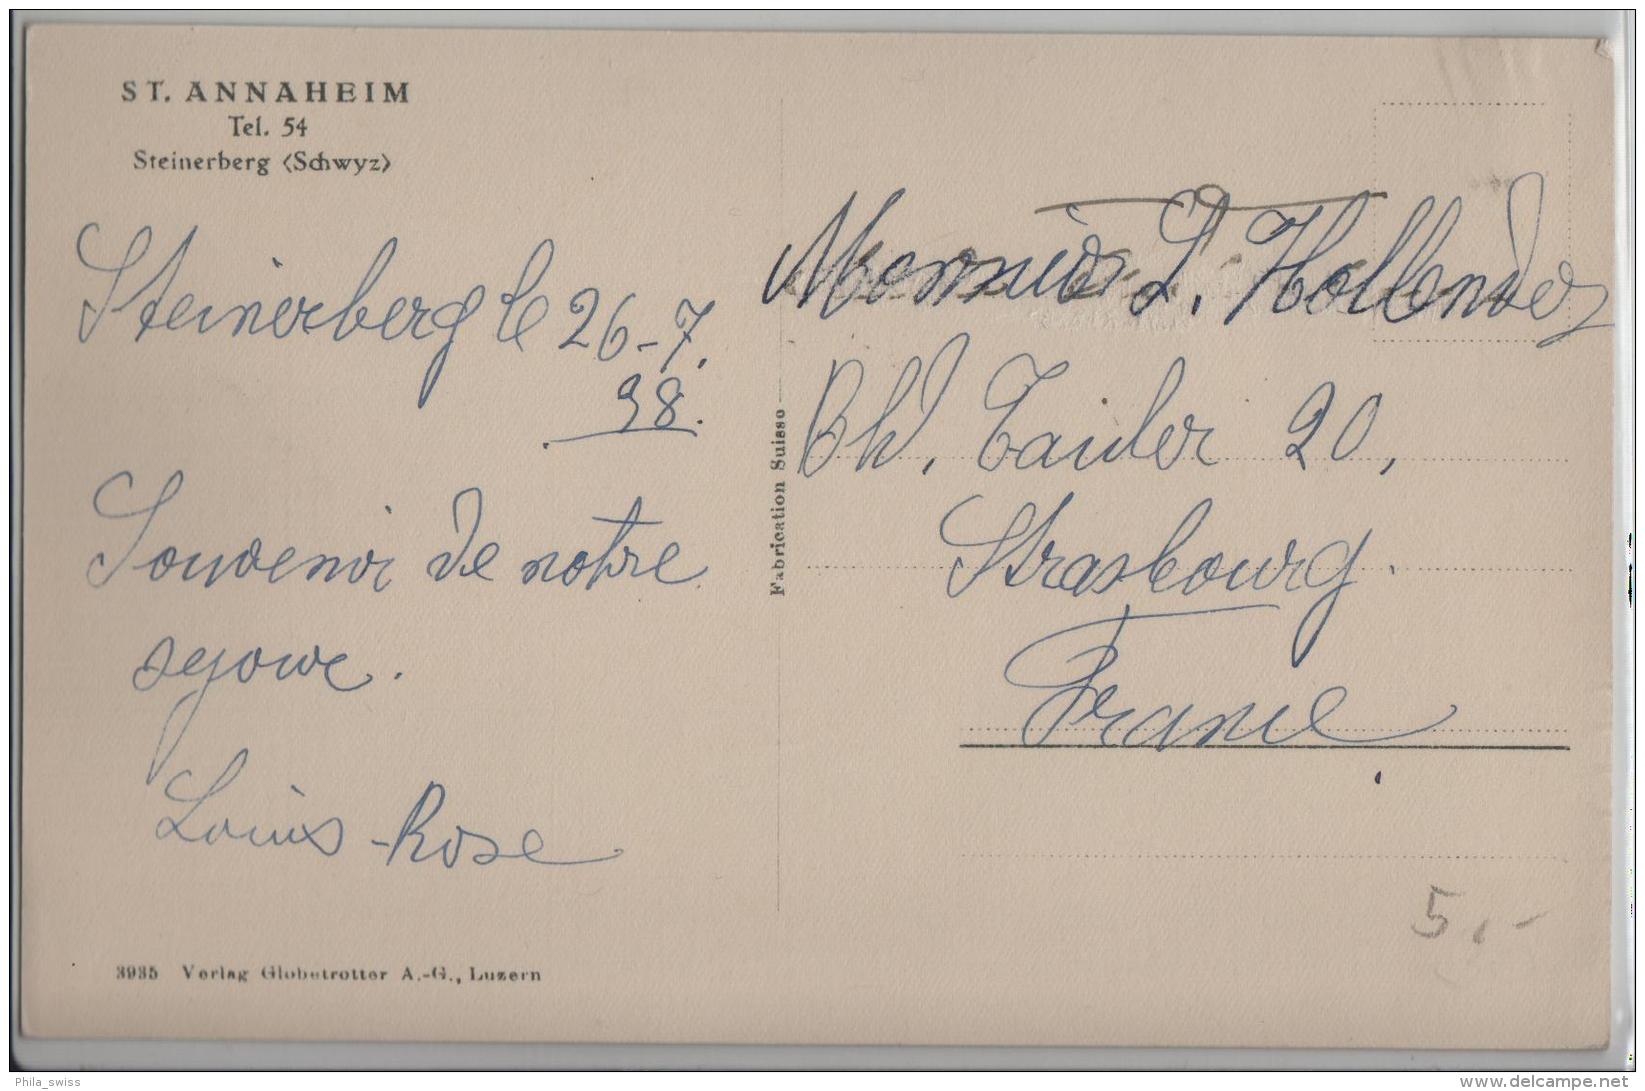 ST. ANNAHEIM
Tel. 54
Steinerberg (Schwyz)
Steinerberg le 26-7.
38.
Souvenir de notre
sejour.
Louis-Rose
3935 Verlag Globetrotter A.-G., Luzern
Fabrication Suisse
L. Hollender
Bld. Tauler 20,
Strasbourg.
France
5,-
Phila_swiss
www.delcampe.net